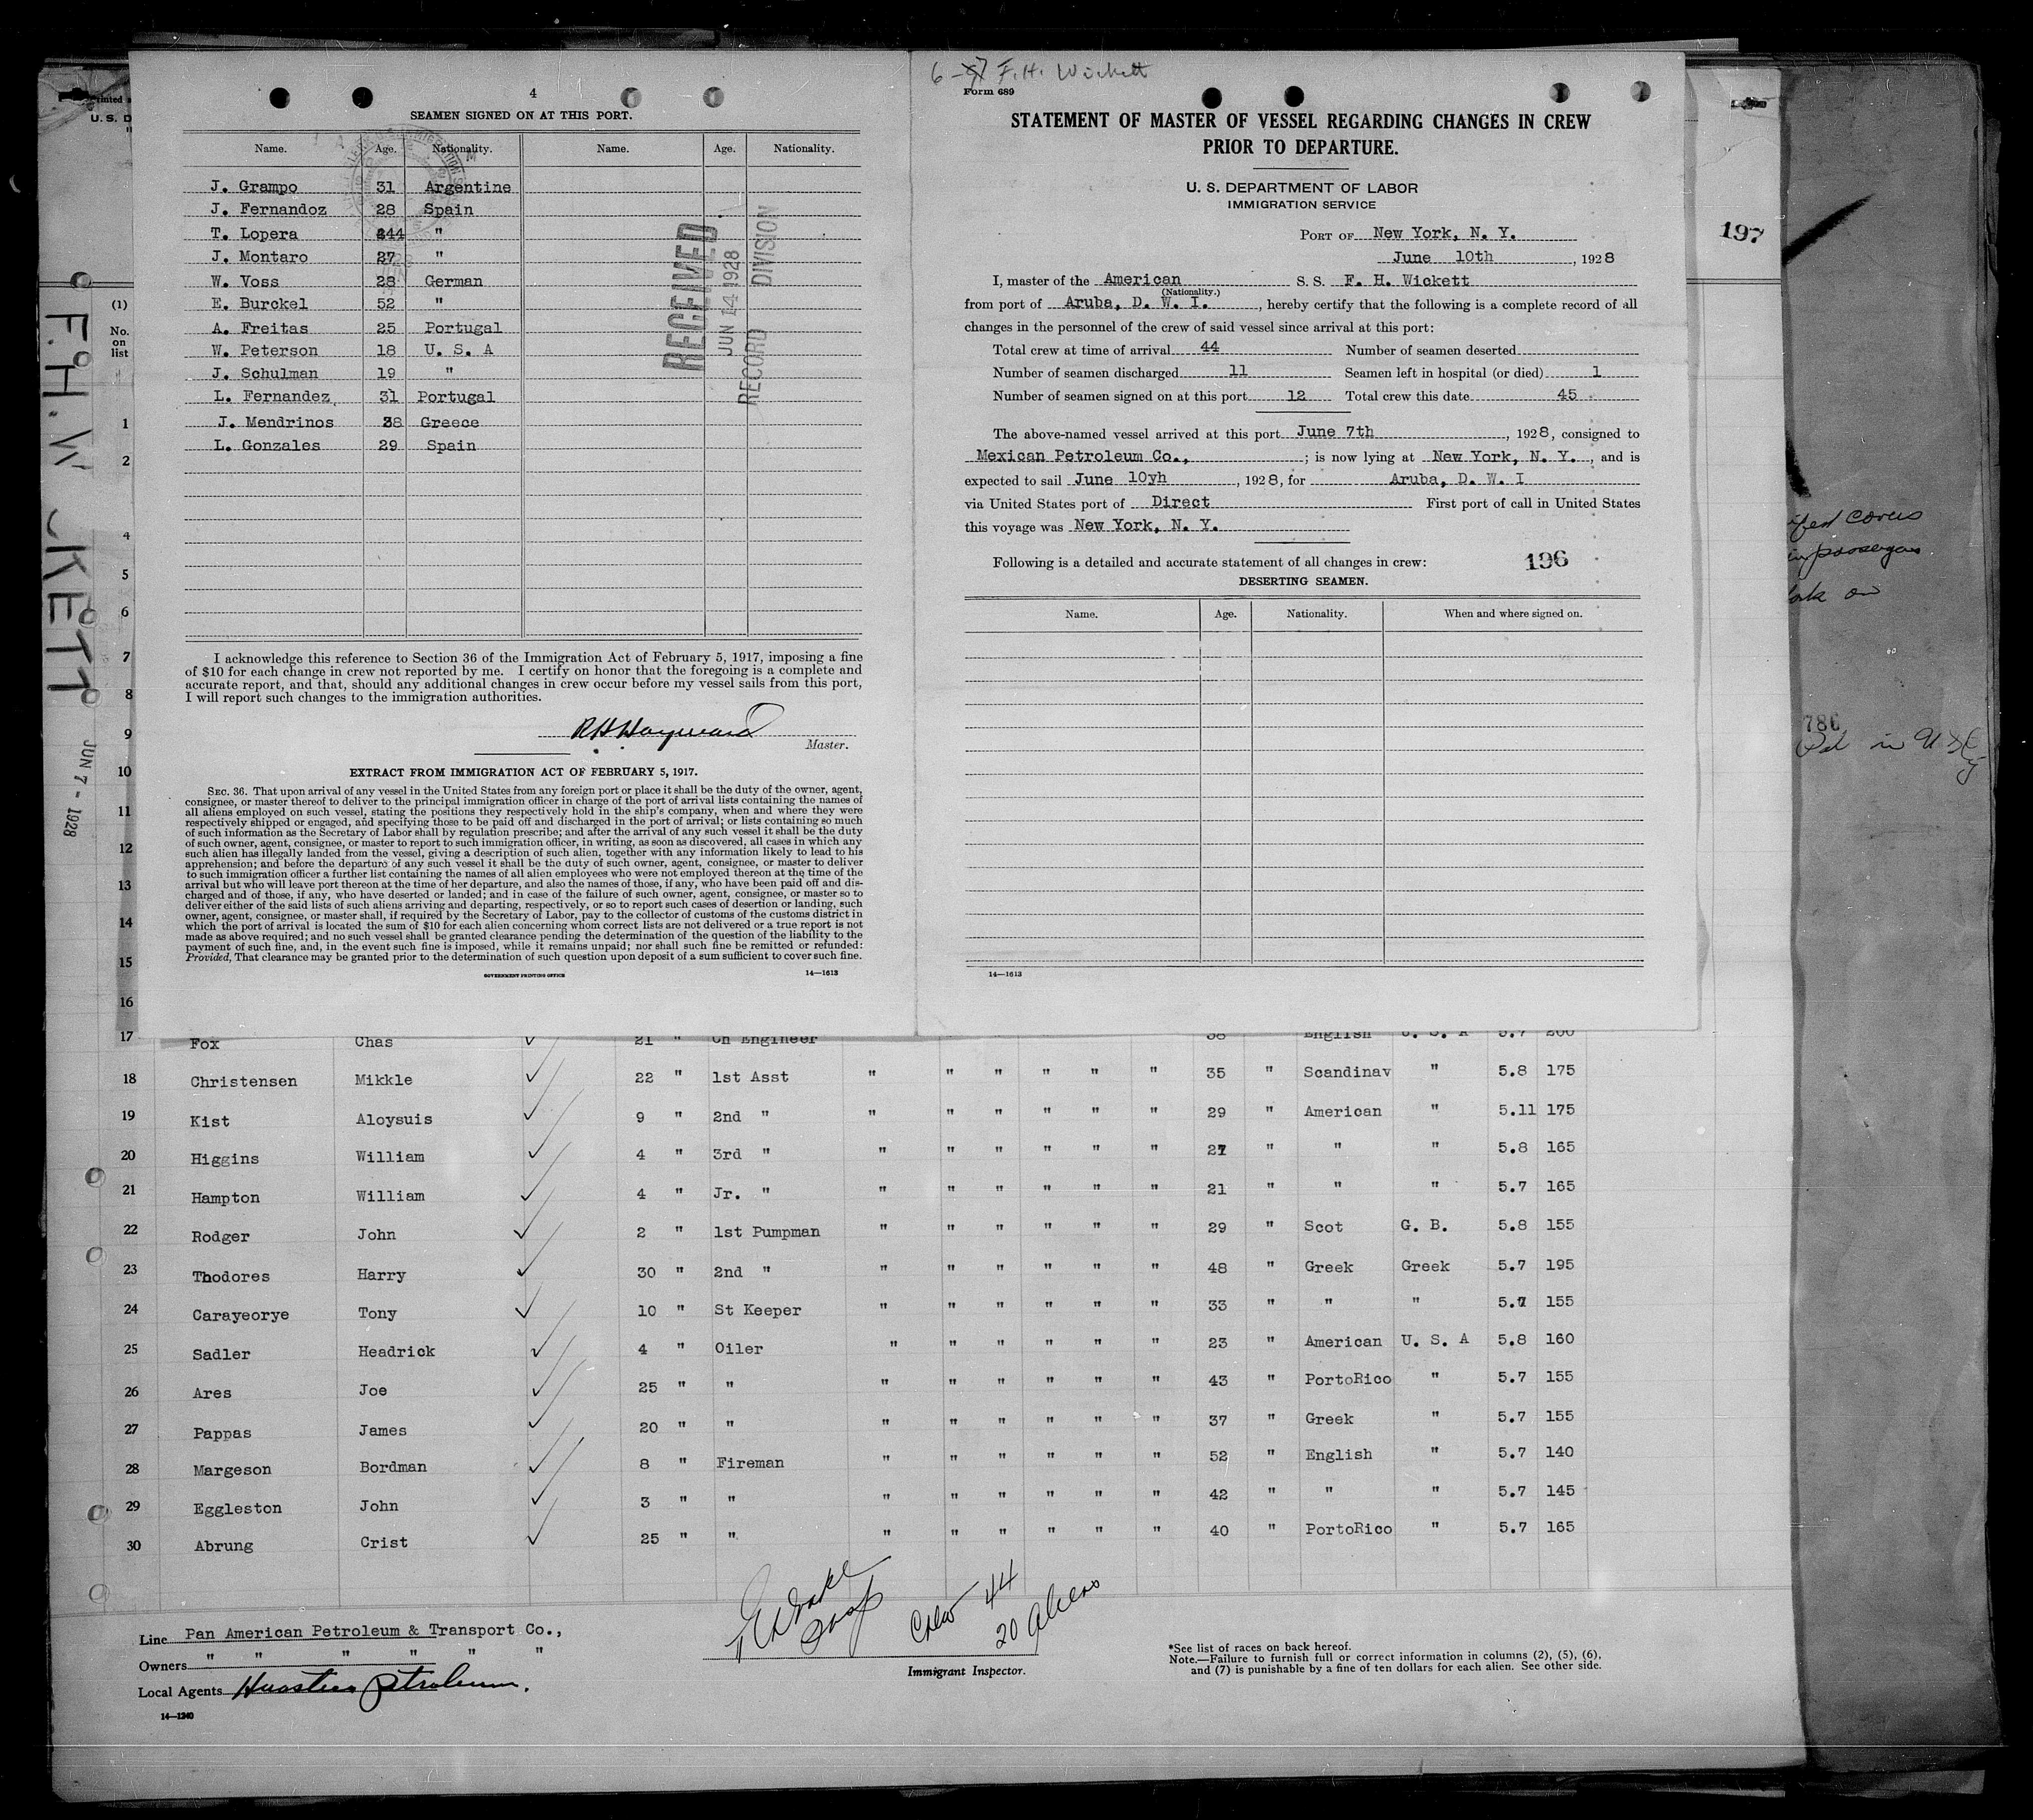 4
SEAMEN SIGNED ON AT THIS PORT.
Name. Age. Nationality. Name. Age. Nationality.
J. Grampo 31 Argentine
J. Fernandoz 28 Spain
T. Lopera 44 "
J. Montaro 27 "
W. Voss 28 German
E. Burckel 52 "
A. Freitas 25 Portugal
W. Peterson 18 U. S. A
J. Schulman 19 "
L. Fernandez 31 Portugal
J. Mendrinos 38 Greece
L. Gonzales 29 Spain
RECEIVED
JUN 14 1928
RECORD DIVISION
I acknowledge this reference to Section 36 of the Immigration Act of February 5, 1917, imposing a fine
of $10 for each change in crew not reported by me. I certify on honor that the foregoing is a complete and
accurate report, and that, should any additional changes in crew occur before my vessel sails from this port,
I will report such changes to the immigration authorities.
R H Hayward
Master.
EXTRACT FROM IMMIGRATION ACT OF FEBRUARY 5, 1917.
SEC. 36. That upon arrival of any vessel in the United States from any foreign port or place it shall be the duty of the owner, agent,
consignee, or master thereof to deliver to the principal immigration officer in charge of the port of arrival lists containing the names of
all aliens employed on such vessel, stating the positions they respectively hold in the ship's company, when and where they were
respectively shipped or engaged, and specifying those to be paid off and discharged in the port of arrival; or lists containing so much
of such information as the Secretary of Labor shall by regulation prescribe; and after the arrival of any such vessel it shall be the duty
of such owner, agent, consignee, or master to report to such immigration officer, in writing, as soon as discovered, all cases in which any
such alien has illegally landed from the vessel, giving a description of such alien, together with any information likely to lead to his
apprehension; and before the departure of any such vessel it shall be the duty of such owner, agent, consignee, or master to deliver
to such immigration officer a further list containing the names of all alien employees who were not employed thereon at the time of the
arrival but who will leave port thereon at the time of her departure, and also the names of those, if any, who have been paid off and dis-
charged and of those, if any, who have deserted or landed; and in case of the failure of such owner, agent, consignee, or master so to
deliver either of the said lists of such aliens arriving and departing, respectively, or so to report such cases of desertion or landing, such
owner, agent, consignee, or master shall, if required by the Secretary of Labor, pay to the collector of customs of the customs district in
which the port of arrival is located the sum of $10 for each alien concerning whom correct lists are not delivered or a true report is not
made as above required; and no such vessel shall be granted clearance pending the determination of the question of the liability to the
payment of such fine, and, in the event such fine is imposed, while it remains unpaid; nor shall such fine be remitted or refunded:
Provided, That clearance may be granted prior to the determination of such question upon deposit of a sum sufficient to cover such fine.
GOVERNMENT PRINTING OFFICE 14—1613
6-7 F. H. Wickett
Form 689
STATEMENT OF MASTER OF VESSEL REGARDING CHANGES IN CREW
PRIOR TO DEPARTURE.
U. S. DEPARTMENT OF LABOR
IMMIGRATION SERVICE
PORT OF New York, N. Y.
June 10th, 1928
I, master of the American S. S. F. H. Wickett
(Nationality.)
from port of Aruba, D. W. I., hereby certify that the following is a complete record of all
changes in the personnel of the crew of said vessel since arrival at this port:
Total crew at time of arrival 44 Number of seamen deserted
Number of seamen discharged 11 Seamen left in hospital (or died) 1
Number of seamen signed on at this port 12 Total crew this date 45
The above-named vessel arrived at this port June 7th, 1928, consigned to
Mexican Petroleum Co., ; is now lying at New York, N. Y., and is
expected to sail June 10yh, 1928, for Aruba, D. W. I
via United States port of Direct First port of call in United States
this voyage was New York, N. Y.
Following is a detailed and accurate statement of all changes in crew: 196
DESERTING SEAMEN.
Name. Age. Nationality. When and where signed on.
14—1613
197
U. S. D
F. H. W CKETT
JUN 7 - 1928
(1)
No.
on
list
1
2
4
5
6
7
8
9
10
11
12
13
14
15
16
17 Fox Chas 21 " Ch Engineer 38 English U. S. A 5.7 200
18 Christensen Mikkle 22 " 1st Asst " " " " " " 35 " Scandinav " 5.8 175
19 Kist Aloysuis 9 " 2nd " " " " " " " 29 " American " 5.11 175
20 Higgins William 4 " 3rd " " " " " " " 27 " " " 5.8 165
21 Hampton William 4 " Jr. " " " " " " " 21 " " " 5.7 165
22 Rodger John 2 " 1st Pumpman " " " " " " 29 " Scot G. B. 5.8 155
23 Thodores Harry 30 " 2nd " " " " " " " 48 " Greek Greek 5.7 195
24 Carayeorye Tony 10 " St Keeper " " " " " " 33 " " " 5.7 155
25 Sadler Headrick 4 " Oiler " " " " " " 23 " American U. S. A 5.8 160
26 Ares Joe 25 " " " " " " " " 43 " PortoRico " 5.7 155
27 Pappas James 20 " " " " " " " " 37 " Greek " 5.7 155
28 Margeson Bordman 8 " Fireman " " " " " " 52 " English " 5.7 140
29 Eggleston John 3 " " " " " " " " 42 " " " 5.7 145
30 Abrung Crist 25 " " " " " " " " 40 " PortoRico " 5.7 165
Crew 44
20 Aliens
Line Pan American Petroleum & Transport Co.,
Owners " " " " " "
Local Agents Huasteca Petroleum.
14—1240
Immigrant Inspector.
*See list of races on back hereof.
Note.—Failure to furnish full or correct information in columns (2), (5), (6),
and (7) is punishable by a fine of ten dollars for each alien. See other side.
covers
786